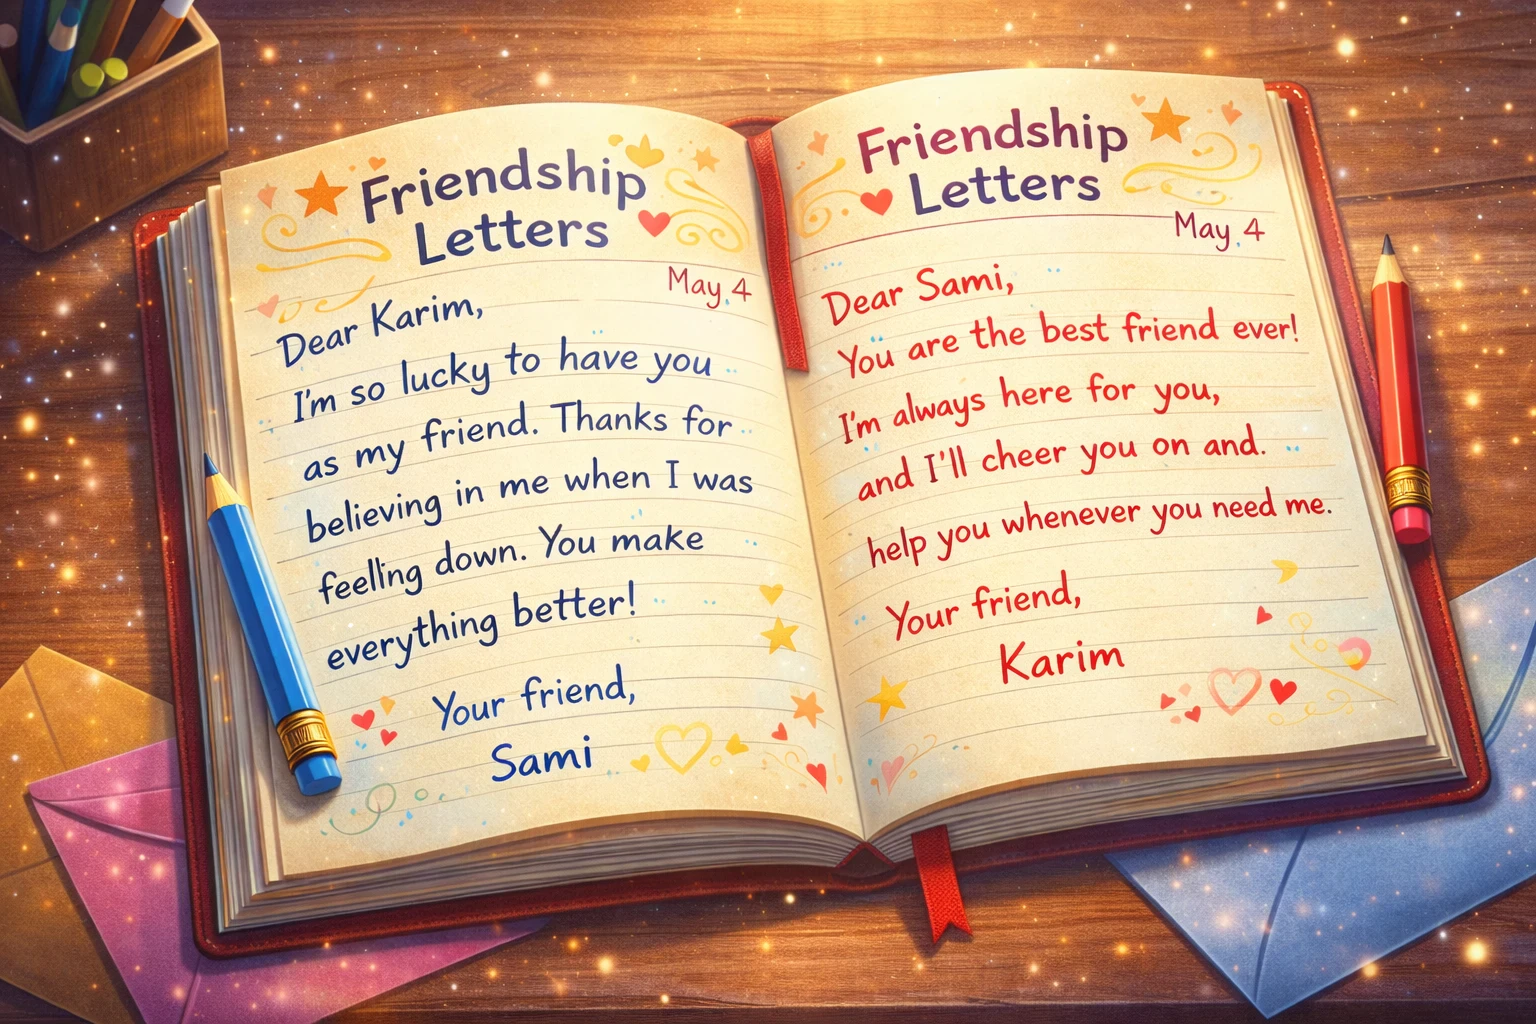 Friendship
Letters
May 4
Dear Karim,
I'm so lucky to have you
as my friend. Thanks for
believing in me when I was
feelling down. You make
everything better!
Your friend,
Sami
Friendship
Letters
May 4
Dear Sami,
You are the best friend ever!
I'm always here for you,
and I'll cheer you on and.
help you whenever you need me.
Your friend,
Karim